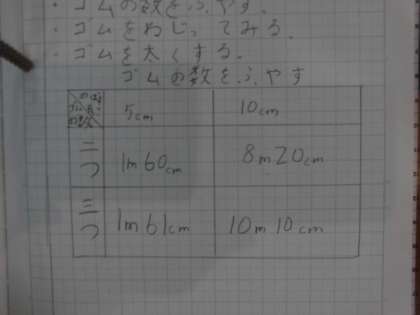 ・ゴムの数をふやす。
・ゴムをねじってみる。
・ゴムを太くする。
ゴムの数をふやす
5cm 10cm
二つ 1m60cm 8m20cm
三つ 1m61cm 10m10cm